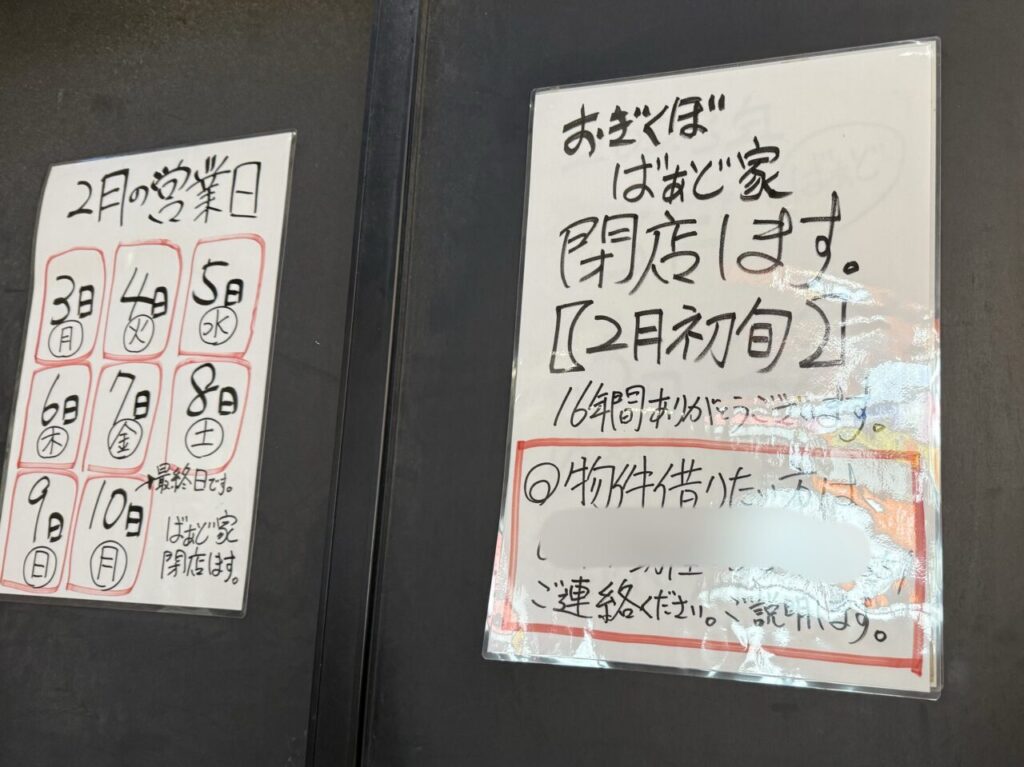 2月の営業日
3日 4日 5日
月 火 水
6日 7日 8日
木 金 土
9日 10日
日 月
→最終日です。
ばぁど家
閉店します。
おぎくぼ
ばぁど家
閉店します。
【2月初旬】
16年間ありがとうございます。
◎物件借りたい方は
ご連絡ください。ご説明します。